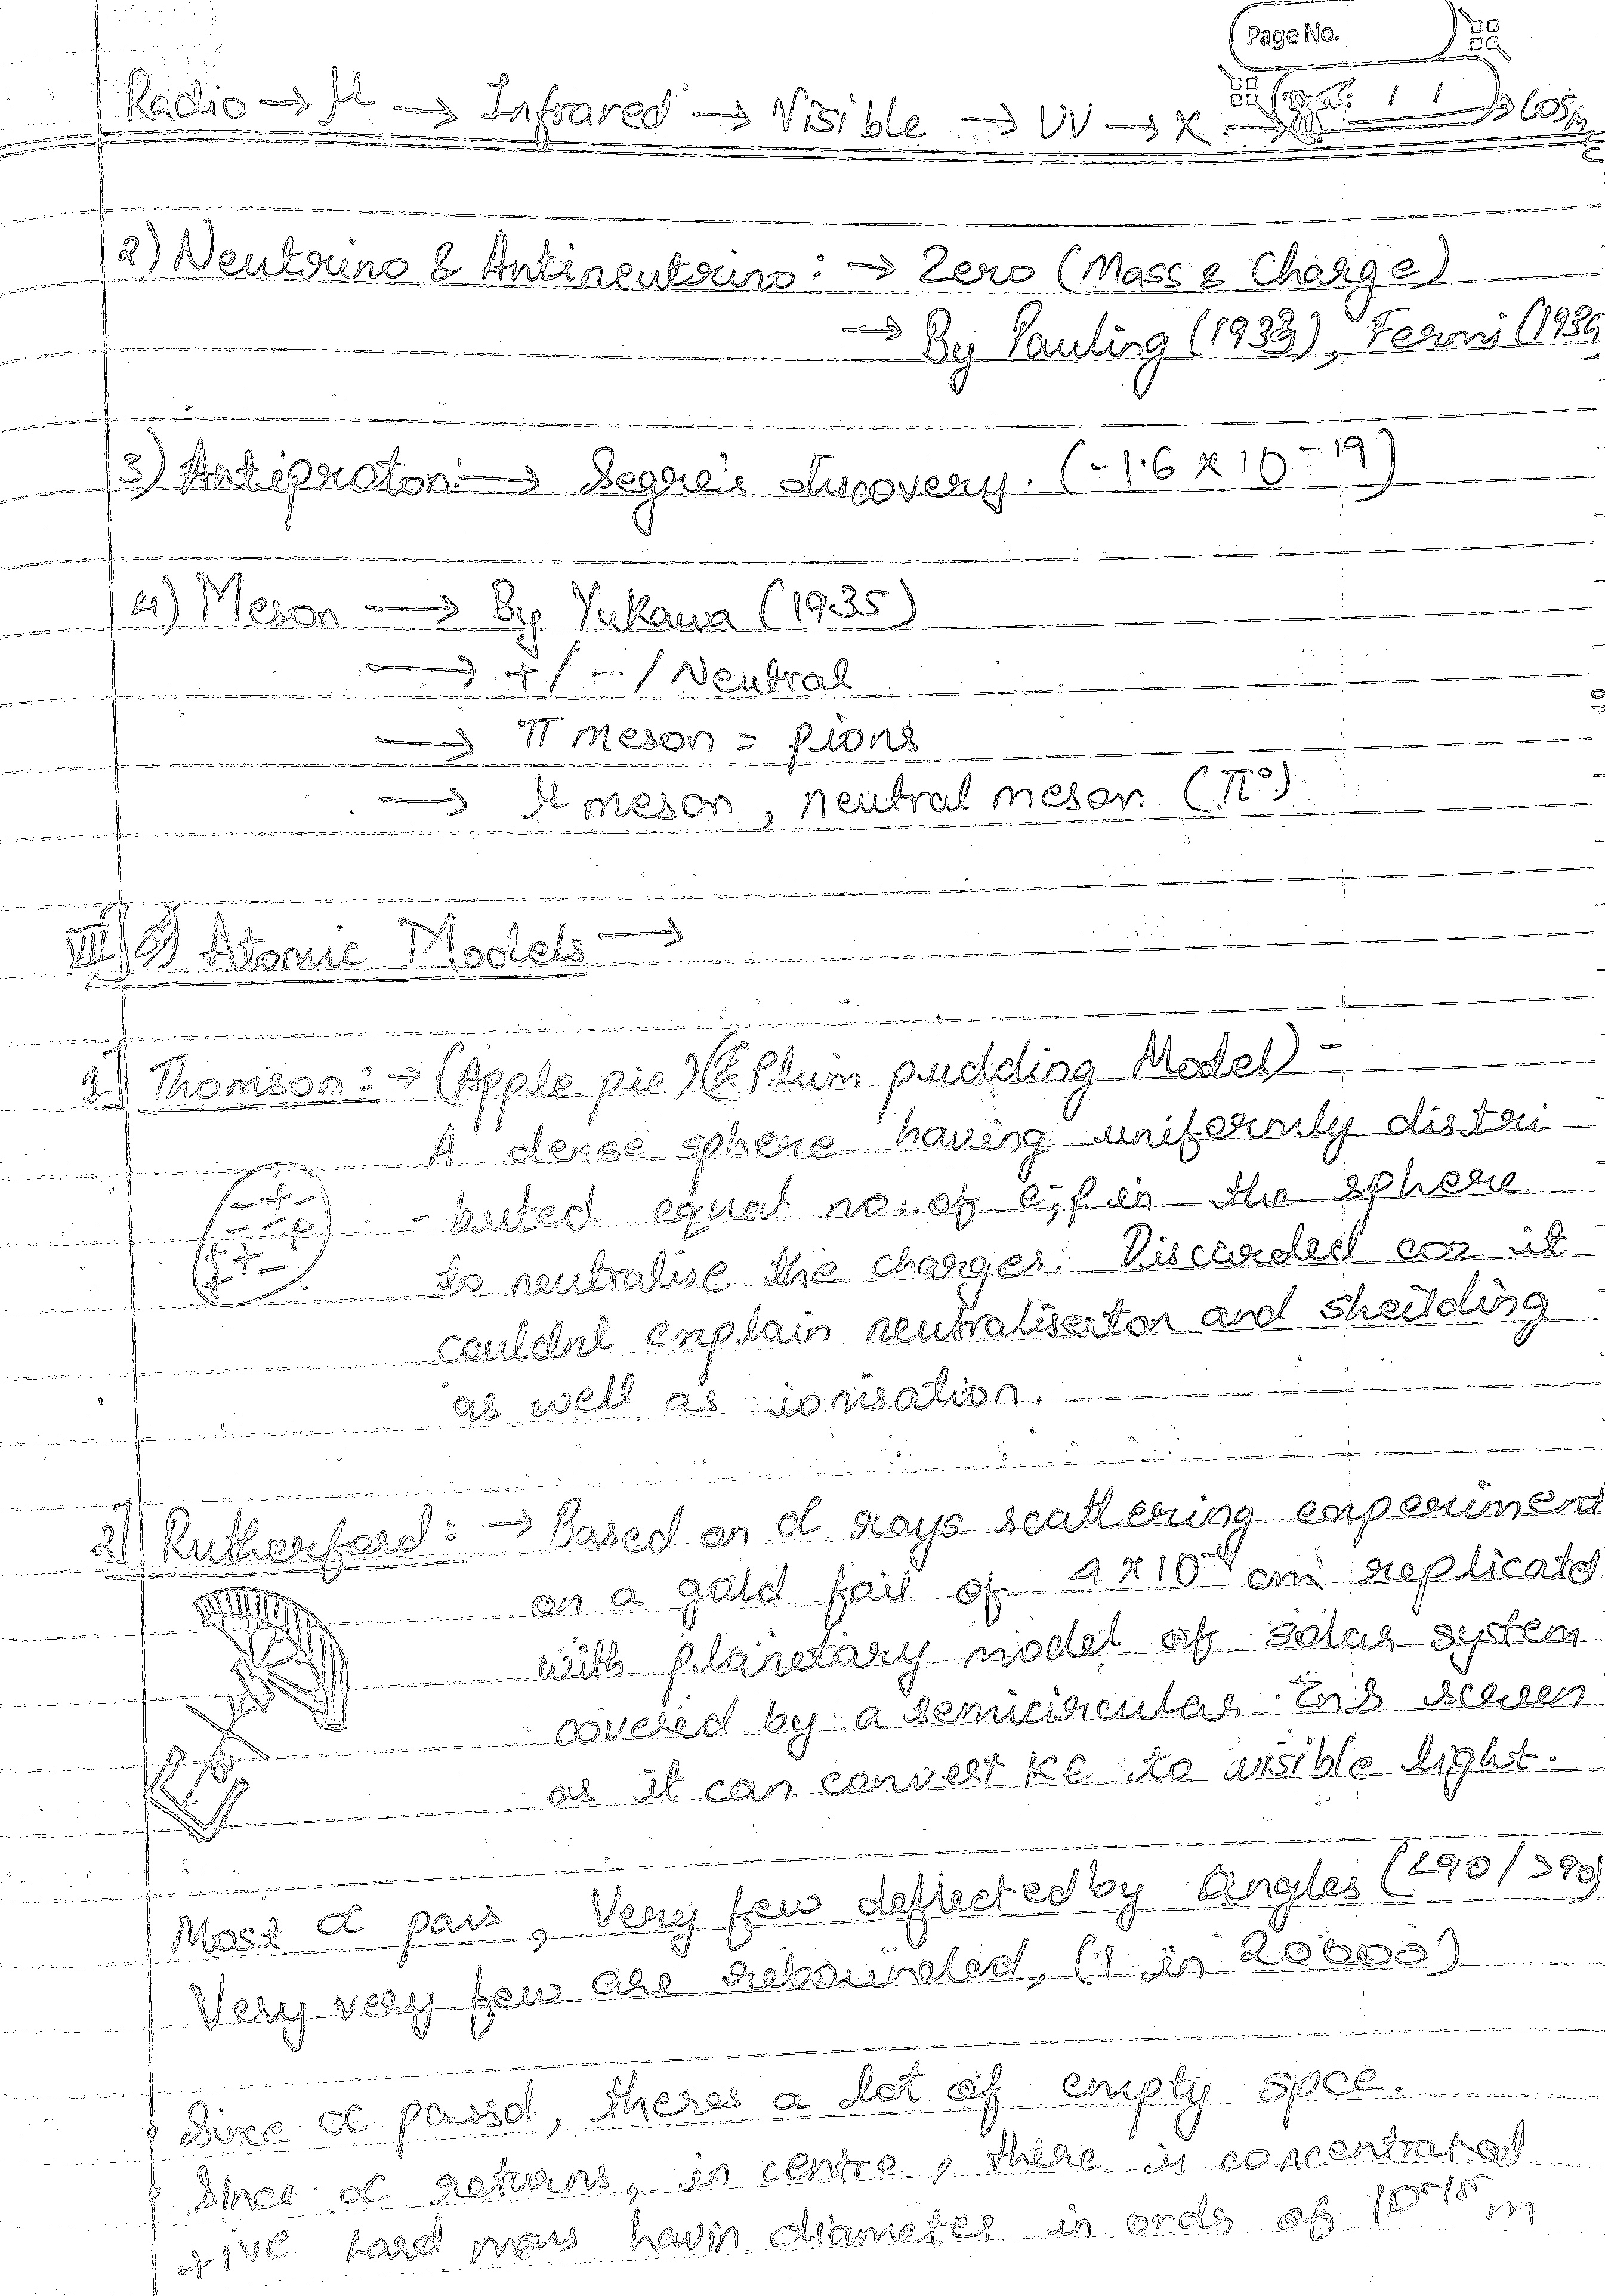 Page No.
Radio → μ → Infrared → Visible → UV → X → → Cosmic
2) Neutrino & Antineutrino : → Zero (Mass & Charge)
→ By Pauling (1933), Fermi (1934
3) Antiproton: → Segre's discovery. (-1.6 x 10-19)
4) Meson → By Yukawa (1935)
→ + / - / Neutral
→ π meson = pions
→ μ meson, neutral meson (π°)
VIII) Atomic Models →
1) Thomson : → (Apple pie) (Plum pudding Model) -
A dense sphere having uniformly distri
- buted equal no. of e, p in the sphere
to neutralise the charges. Discarded coz it
couldnt explain neutralisation and sheilding
as well as ionisation.
2) Rutherford : → Based on α rays scattering experiment
on a gold foil of 4 x 10 cm replicatd
with planetary model of solar system
covered by a semicircular ZnS screen
as it can convert KE to visible light.
Most α pass, Very few deflected by Angles (<90/>90)
Very very few are rebounded, (1 in 20000)
Since α passd, theres a lot of empty spce.
Since α returns, in centre, there is concentrated
+ive hard mass havin diameter in ordr of 10-15 m